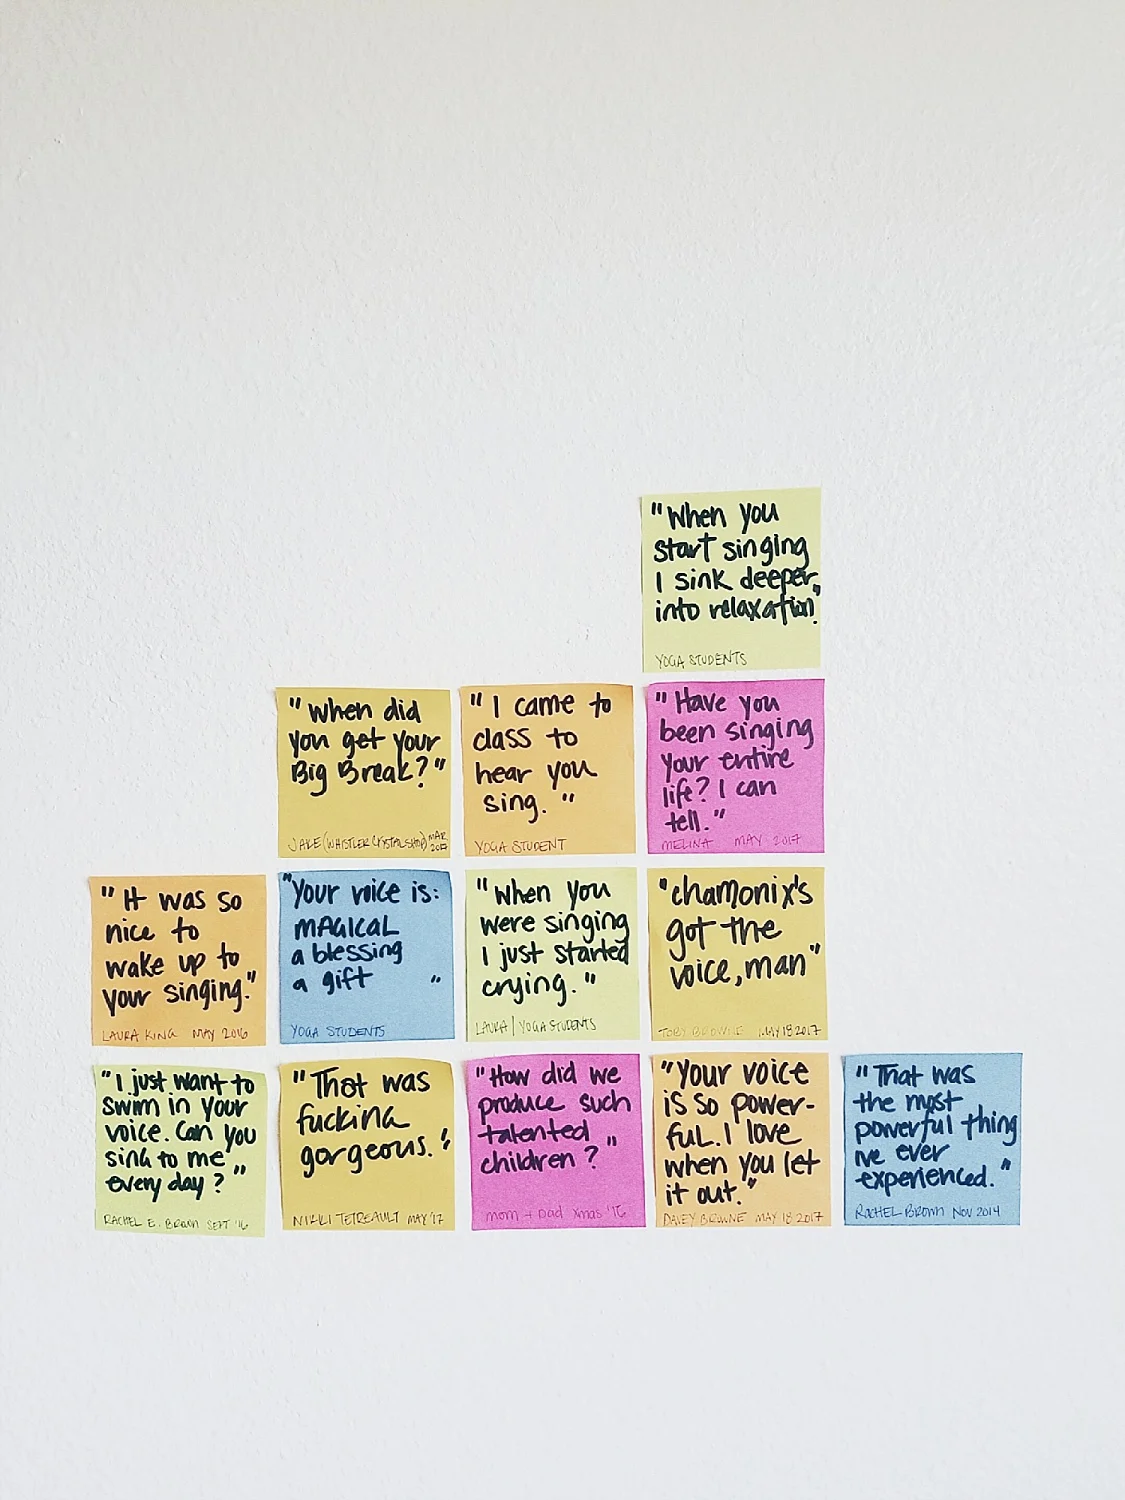 "When you
start singing
I sink deeper
into relaxation."
YOGA STUDENTS
"When did
you get your
Big Break?"
JAKE (WHISTLER CRYSTAL SHOP) MAR
2017
"I came to
class to
hear you
sing."
YOGA STUDENT
"Have you
been singing
your entire
life? I can
tell."
MELINA MAY 2017
"It was so
nice to
wake up to
your singing."
LAURA KING MAY 2016
"Your voice is:
MAGICAL
a blessing
a gift "
YOGA STUDENTS
"When you
were singing
I just started
crying."
LAURA | YOGA STUDENTS
"Chamonix's
got the
voice, man"
TOBY BROWNE MAY 18 2017
"I just want to
swim in your
voice. Can you
sing to me
every day?"
RACHEL E. BROWN SEPT '16
"That was
fucking
gorgeous."
NIKKI TETREAULT MAY '17
"How did we
produce such
talented
children?"
mom + Dad Xmas '16
"Your voice
is so power-
ful. I love
when you let
it out."
DAVEY BROWNE MAY 18 2017
"That was
the most
powerful thing
I've ever
experienced."
RACHEL BROWN NOV 2014